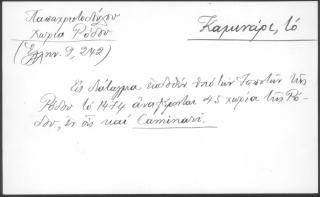 Παπαχριστοδούλου
Χωρία Ρόδου
(Ἑλλην. 9, 242)
Καμινάρι, τό
Εἰς διάταγμα ἐκδοθὲν ὑπὸ τῶν Ἱπποτῶν τῆς
Ρόδου τὸ 1474 ἀναφέρονται 45 χωρία τῆς Ρό-
δου, ἐν οἷς καὶ Caminari.